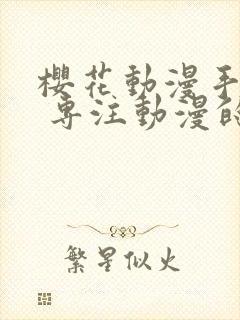 櫻花動漫手
專注動漫的
繁星似火